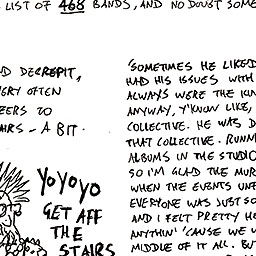 LIST OF 468 BANDS, AND NO DOUBT SOME
D DECREPIT,
ERY OFTEN
EERS TO
AIRS - A BIT.
YOYOYO
GET AFF
THE
STAIRS
'SOMETIMES HE LIKED
HAD HIS ISSUES WITH
ALWAYS WERE THE KIN
ANYWAY, Y'KNOW LIKE,
COLLECTIVE. HE WAS D
THAT COLLECTIVE. RUNN
ALBUMS IN THE STUDIO
SO I'M GLAD THE MUR
WHEN THE EVENTS UNF
EVERYONE WAS JUST SO
AND I FELT PRETTY HE
ANYTHIN' 'CAUSE WE W
MIDDLE OF IT ALL. BUT